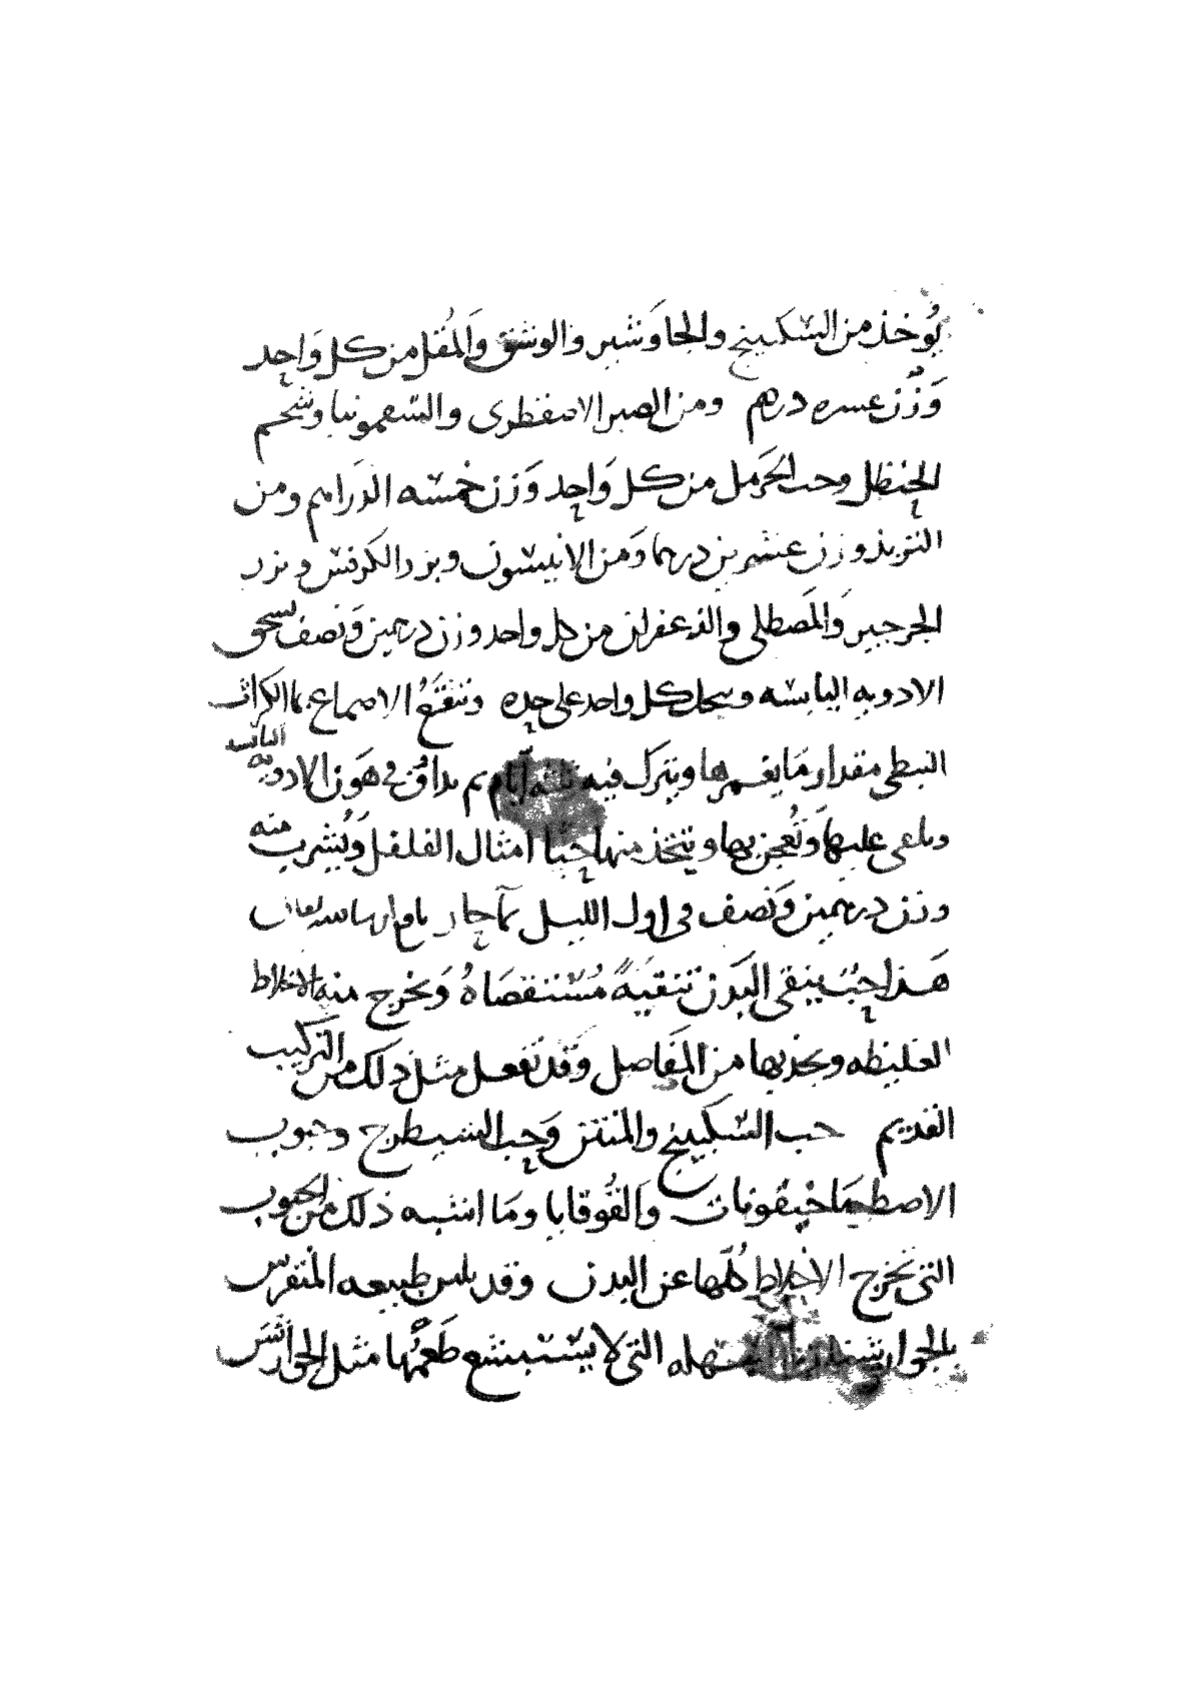 يُوخذ من السكبينج والجاوَشير والوشق وَالمُقل من كل وَاحد
وَزن عسره درهم ومن الصبر الاسقطرى والسقمونيا وشحم
الحنظل وحب الحَرمل من كل وَاحد وَزن خمسه الدَراهم ومن
التربد وزن عشرين درهما وَمن الانيسون وبزر الكَرفس وبزر
الجرجير وَالمَصطكى والزعفران من كل واحد وزن درهمين وَنصف تسحق
الادويه اليابسه وتنخل كل واحد على حده وتنقَعُ الاصماغ بما الكراث
النبطى مقدار مَا يغمرها ويترَك فيه ثلثه اَيام ثم يداق فى هَون الادويه اليابسه
وتلقى عليها وَتُعجن بها ويتخذ منها حَبًا امثال الفلفل وَيُشرب منه
وزن درهمين وَنصف فى اول الليل بمآ حار نافع ان شا الله تعالى
هَذا حبُ ينقى البَدن تنقيَهً مُسْتقصَاهُ وَيخرج منه الاخلاط
الغليظه ويجذبها من المَفاصل وَقد تفعل مثل ذلك من التركيب
القديم حب السَكبينج والمنتن وَحب الشيطرج وحبوب
الاصطمَاخيقونات وَالقُوقايا ومَا اشبه ذلك من الحبوب
التى تخرج الاخلاط كُلّها عن البدن وقد يلين طبيعه المنقرس
بالجوارشنات المسهله التى لا يستبشع طَعمُها مثل الجوارشن